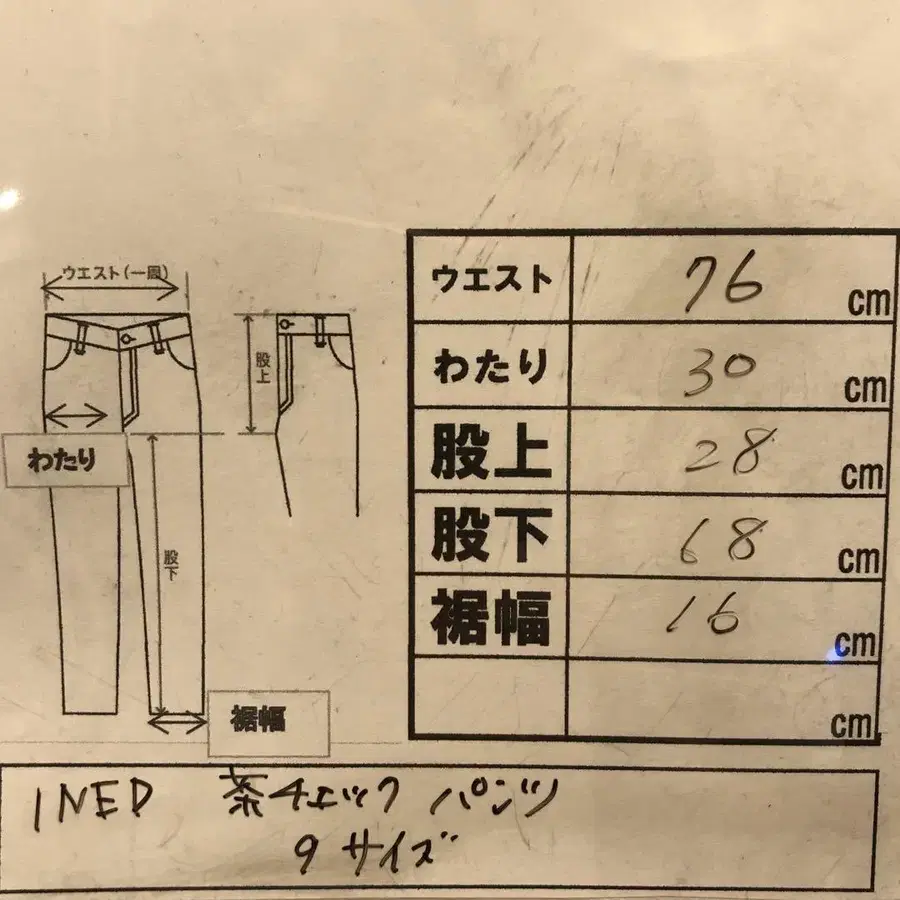 ウエスト(一周)
股上
わたり
股下
裾幅
ウエスト 76 cm
わたり 30 cm
股上 28 cm
股下 68 cm
裾幅 16 cm
cm
INED 茶チェック パンツ
9サイズ